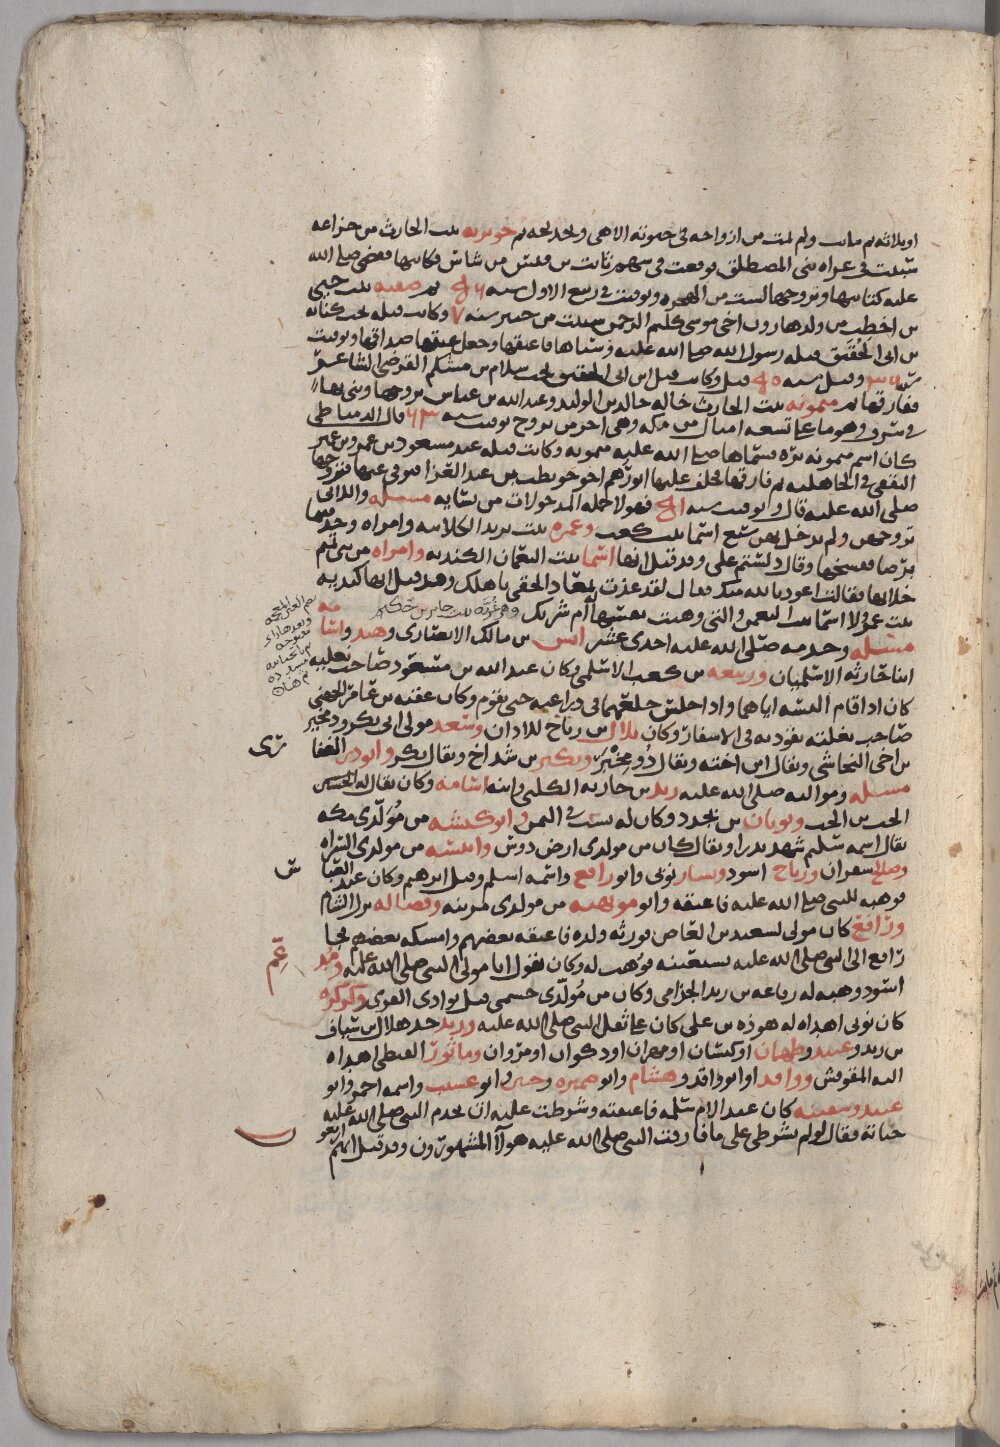 او ثلاثه ثم ماتت ولم تمت من ازواجه في حيوته الا هي وخديجه ثم جويريه بنت الحارث من خزاعه
سبيت في غزاه بني المصطلق فوقعت في سهم ثابت بن قيس بن شاس فكاتبها فقضى صلى الله
عليه كتابتها وتزوجها لست من الهجره وتوفيت في ربيع الاول سنه ثم صفيه بنت حيي
بن اخطب من ولد هارون اخي موسى كليم الرحمن سبيت من خيبر سنه ٧ وكانت قبله تحت كنانه
بن ابي الحقيق قتله رسول الله صلى الله عليه وسباها فاعتقها وجعل عتقها صداقها وتوفيت
وقيل سنه قيل وكانت قبل ابن ابي الحقيق تحت سلام بن مشكم القرضي الشاعر
ففارقها ثم ميمونه بنت الحارث خاله خالد بن الوليد وعبد الله بن عباس تزوجها وبنى بها
في سرف وهو ما على تسعه اميال من مكه وهي اخر من تزوج توفيت سنه قال الدمياطي
كان اسم ميمونه بره فسماها صلى الله عليه ميمونه وكانت قبله عند مسعود بن عمرو بن عمير
الثقفي في الجاهليه ثم فارقها فخلف عليها ابو رهم اخو حويطب بن عبد العزا فتوفي عنها فتزوجها
صلى الله عليه قال وتوفيت سنه فهولا جمله المدخولات من نسايه مسله واللاتي
تزوجهن ولم يدخل بهن سبع اسما بنت كعب وعمره بنت يزيد الكلابيه وامراه وجد بها
برصا ففسخها وقال دلستم علي وقد قيل انها اسما بنت النعمان الكنديه وامراه من بني تميم
خلا بها فقالت اعوذ بالله منك فقال لقد عذت بمعاذ الحقي باهلك وقد قيل انها كنديه
بنت عم لاسما بنت النعمن والتي وهبت نفسها ام شريك وهي غزيه بنت جابر بن حكيم
مسله وخدمه صلى الله عليه احدى عشر انس بن مالك الانصاري وهند واسما
ابنا حارثه الاسلميان وربيعه بن كعب الاسلمي وكان عبد الله بن مسعود صاحب نعليه
كان اذا قام البسه اياهما واذا جلس جعلهما في ذراعيه حتى يقوم وكان عقبه بن عامر الجهني
صاحب بغلته يقود به في الاسفار وكان بلال بن رباح للاذان وسعد مولى ابي بكر وذو مخبر
بن اخي النجاشي ويقال ابن اخته ويقال ذو مخمر وبكير بن شداخ ويقال بكر وابو ذر الغفا
ري
مسله ومواليه صلى الله عليه زيد بن حارثه الكلبي وابنه اسامه وكان يقال له الحسن
الحب بن الحب وثوبان بن بجدد وكان له نسب في اليمن وابو كبشه من مولدي مكه
يقال اسمه سليم شهد بدرا ويقال كان من مولدي ارض دوس وانيسه من مولدي السراه
وصالح شقران ورباح اسود ويسار نوبي وابو رافع واسمه اسلم وقيل ابرهيم وكان عبد العبا
س
فوهبه للنبي صلى الله عليه فاعتقه وابو مويهبه من مولدي مزينه وفضاله نزل الشام
ورافع كان مولى لسعيد بن العاص فورثه ولده فاعتقه بعضهم وامسكه بعضهم فجا
رافع الى النبي صلى الله عليه يستعينه فوهب له وكان يقول انا مولى النبي صلى الله عليه ومد
عم
اسود وهبه له رفاعه بن زيد الجذامي وكان من مولدي حسمى قتل بوادي القرى وكركره
كان نوبي اهداه له هوذه بن علي كان على ثقل النبي صلى الله عليه وزيد جد هلال بن يساف
بن زيد وعبيد وطهمان او كيسان او مهران او ذكوان او مروان ومابور القبطي اهداه
اليه المقوقس وواقد او ابو واقد وهشام وابو ضميره وحنين وابو عسيب واسمه احمر وابو
عبيد وسفينه كان عبد الام سلمه فاعتقته وشرطت عليه ان يخدم النبي صلى الله عليه
حياته فقال لو لم يشرطي علي ما فارقت النبي صلى الله عليه هولآ المشهورون وقد قيل انهم اربعو
ن